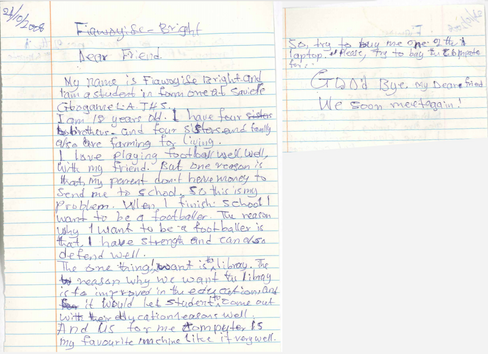 21/10/2008
Fiawoyife-Bright
Dear Friend
My name is Fiawoyife Bright and
I am a student in form one at
Gbogame L.A J.H.S.
I am 18 years old. I have four sisters
brothers and four sisters and family
are farming for living.
I love playing football well, well,
with my friend. But one reason is
that, my parent don't have money to
send me to school, so this is my
Problem. When I finish school I
want to be a footballer. The reason
why I want to be a footballer is
that, I have strength and can also
defend well.
The one thing I want is library. The
reason why we want the library
is to improved in the education
it would let student come out
with their education well.
And us for me computer is
my favourite machine like it very well.
So, try to buy me one of the
laptop. Please, try to buy the
for.
Good Bye. My Dear friend
We soon meet again!